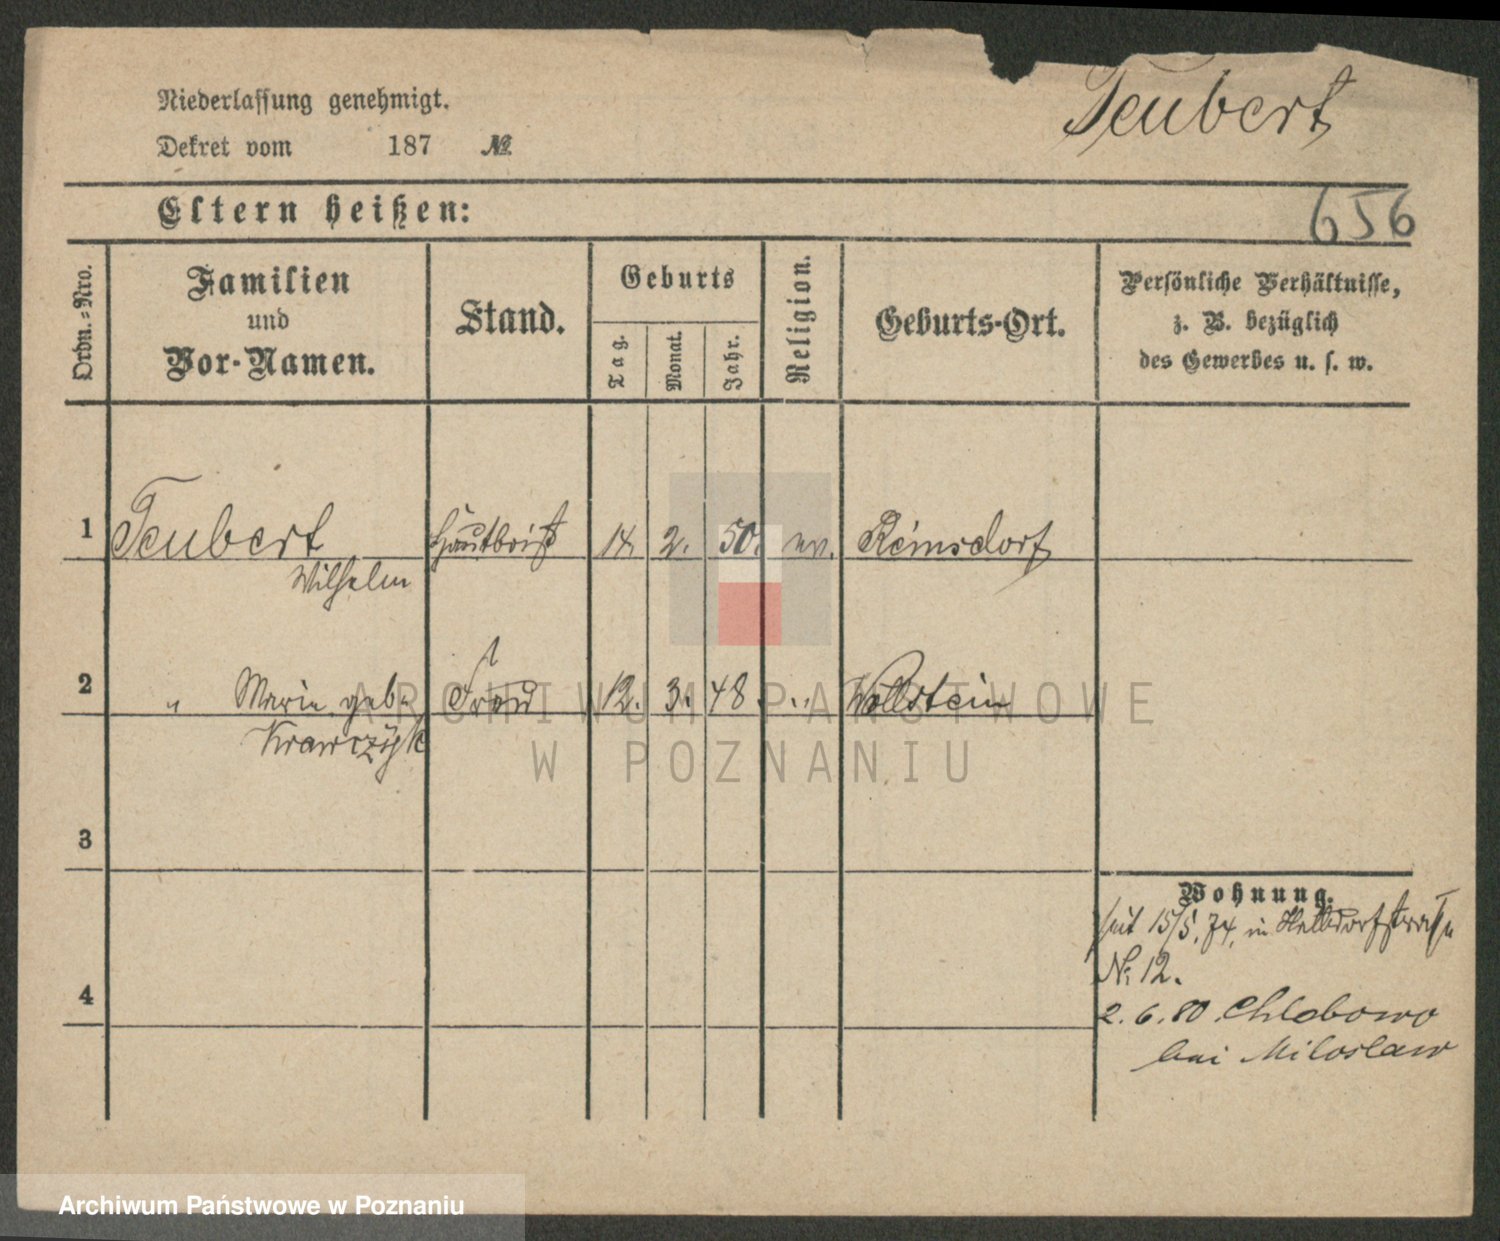 Niederlassung genehmigt.
Teubert
Dekret vom 187 №
Eltern heißen:
656
Ordn.-Nro.
Familien und Vor-Namen.
Stand.
Geburts
Tag.
Monat.
Jahr.
Religion.
Geburts-Ort.
Persönliche Verhältnisse,
z. B. bezüglich
des Gewerbes u. s. w.
1 Teubert 14. 2. 50. ev. Reinsdorf
Wilhelm
2 " Marie geb. Frau 12. 3. 48. " Wollstein
Krawczyk
3
Wohnung.
seit 15/5. 74. in
№ 12.
4
2. 6. 80 Chlebowo
bei Miloslaw
ARCHIWUM PAŃSTWOWE
W POZNANIU
Archiwum Państwowe w Poznaniu